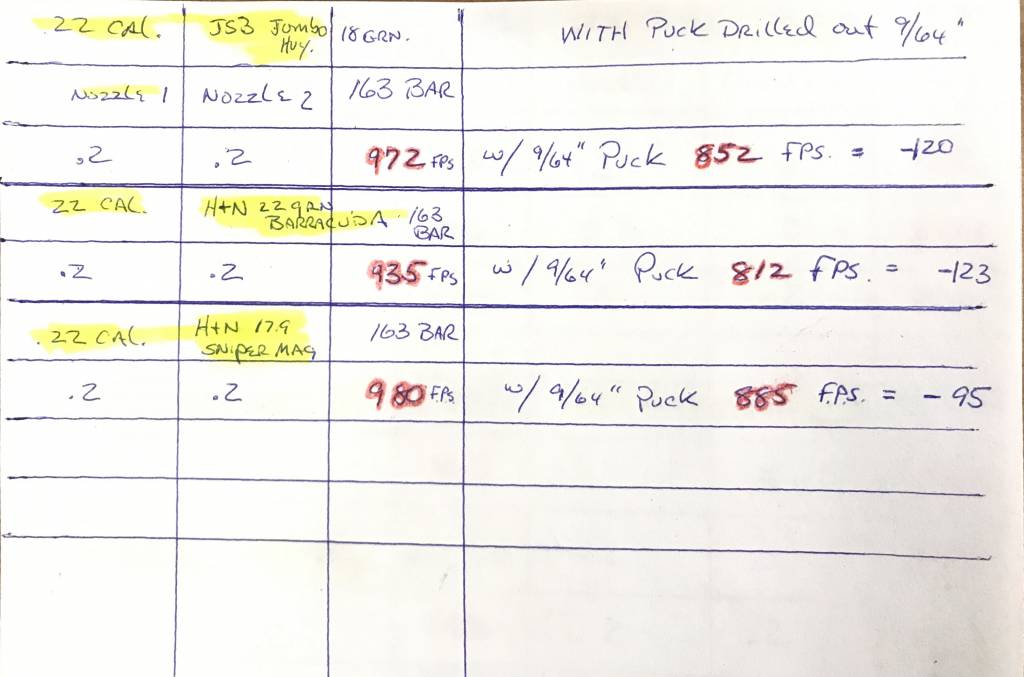 .22 CAL. JSB Jumbo Hvy. 18 GRN. WITH Puck Drilled out 9/64"
Nozzle 1 Nozzle 2 163 BAR
.2 .2 972 FPS w/ 9/64" Puck 852 FPS. = -120
.22 CAL. H+N 22 GRN BARRACUDA 163 BAR
.2 .2 935 FPS w/ 9/64" Puck 812 FPS. = -123
.22 CAL. H+N 17.9 SNIPER MAG 163 BAR
.2 .2 980 FPS w/ 9/64" Puck 885 F.P.S. = -95